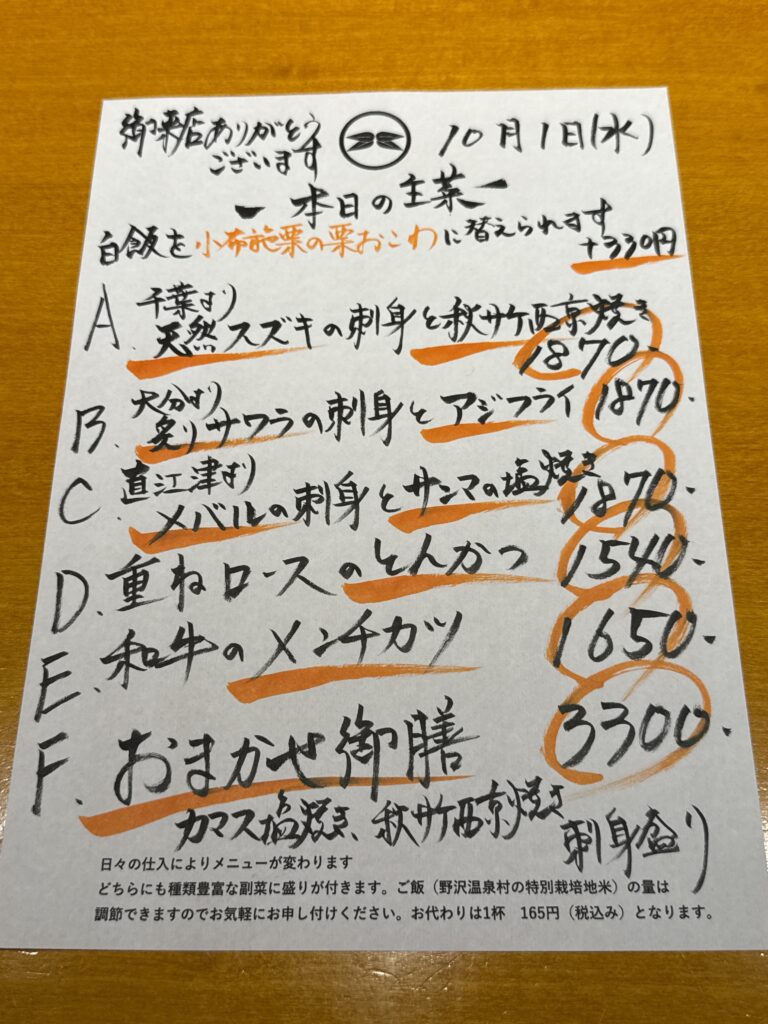 御来店ありがとう
ございます
10月1日(水)
ー 本日の主菜 ー
白飯を小布施栗の栗おこわに替えられます
+330円
A. 千葉より
天然スズキの刺身と秋サケ西京焼き
1870.
B. 大分より
炙りサワラの刺身とアジフライ 1870.
C. 直江津より
メバルの刺身とサンマの塩焼き 1870.
D. 重ねロースのとんかつ 1540.
E. 和牛のメンチカツ 1650.
F. おまかせ御膳 3300.
カマス塩焼き、秋サケ西京焼き
刺身盛り
日々の仕入によりメニューが変わります
どちらにも種類豊富な副菜に盛りが付きます。ご飯（野沢温泉村の特別栽培地米）の量は
調節できますのでお気軽にお申し付けください。お代わりは1杯　165円（税込み）となります。